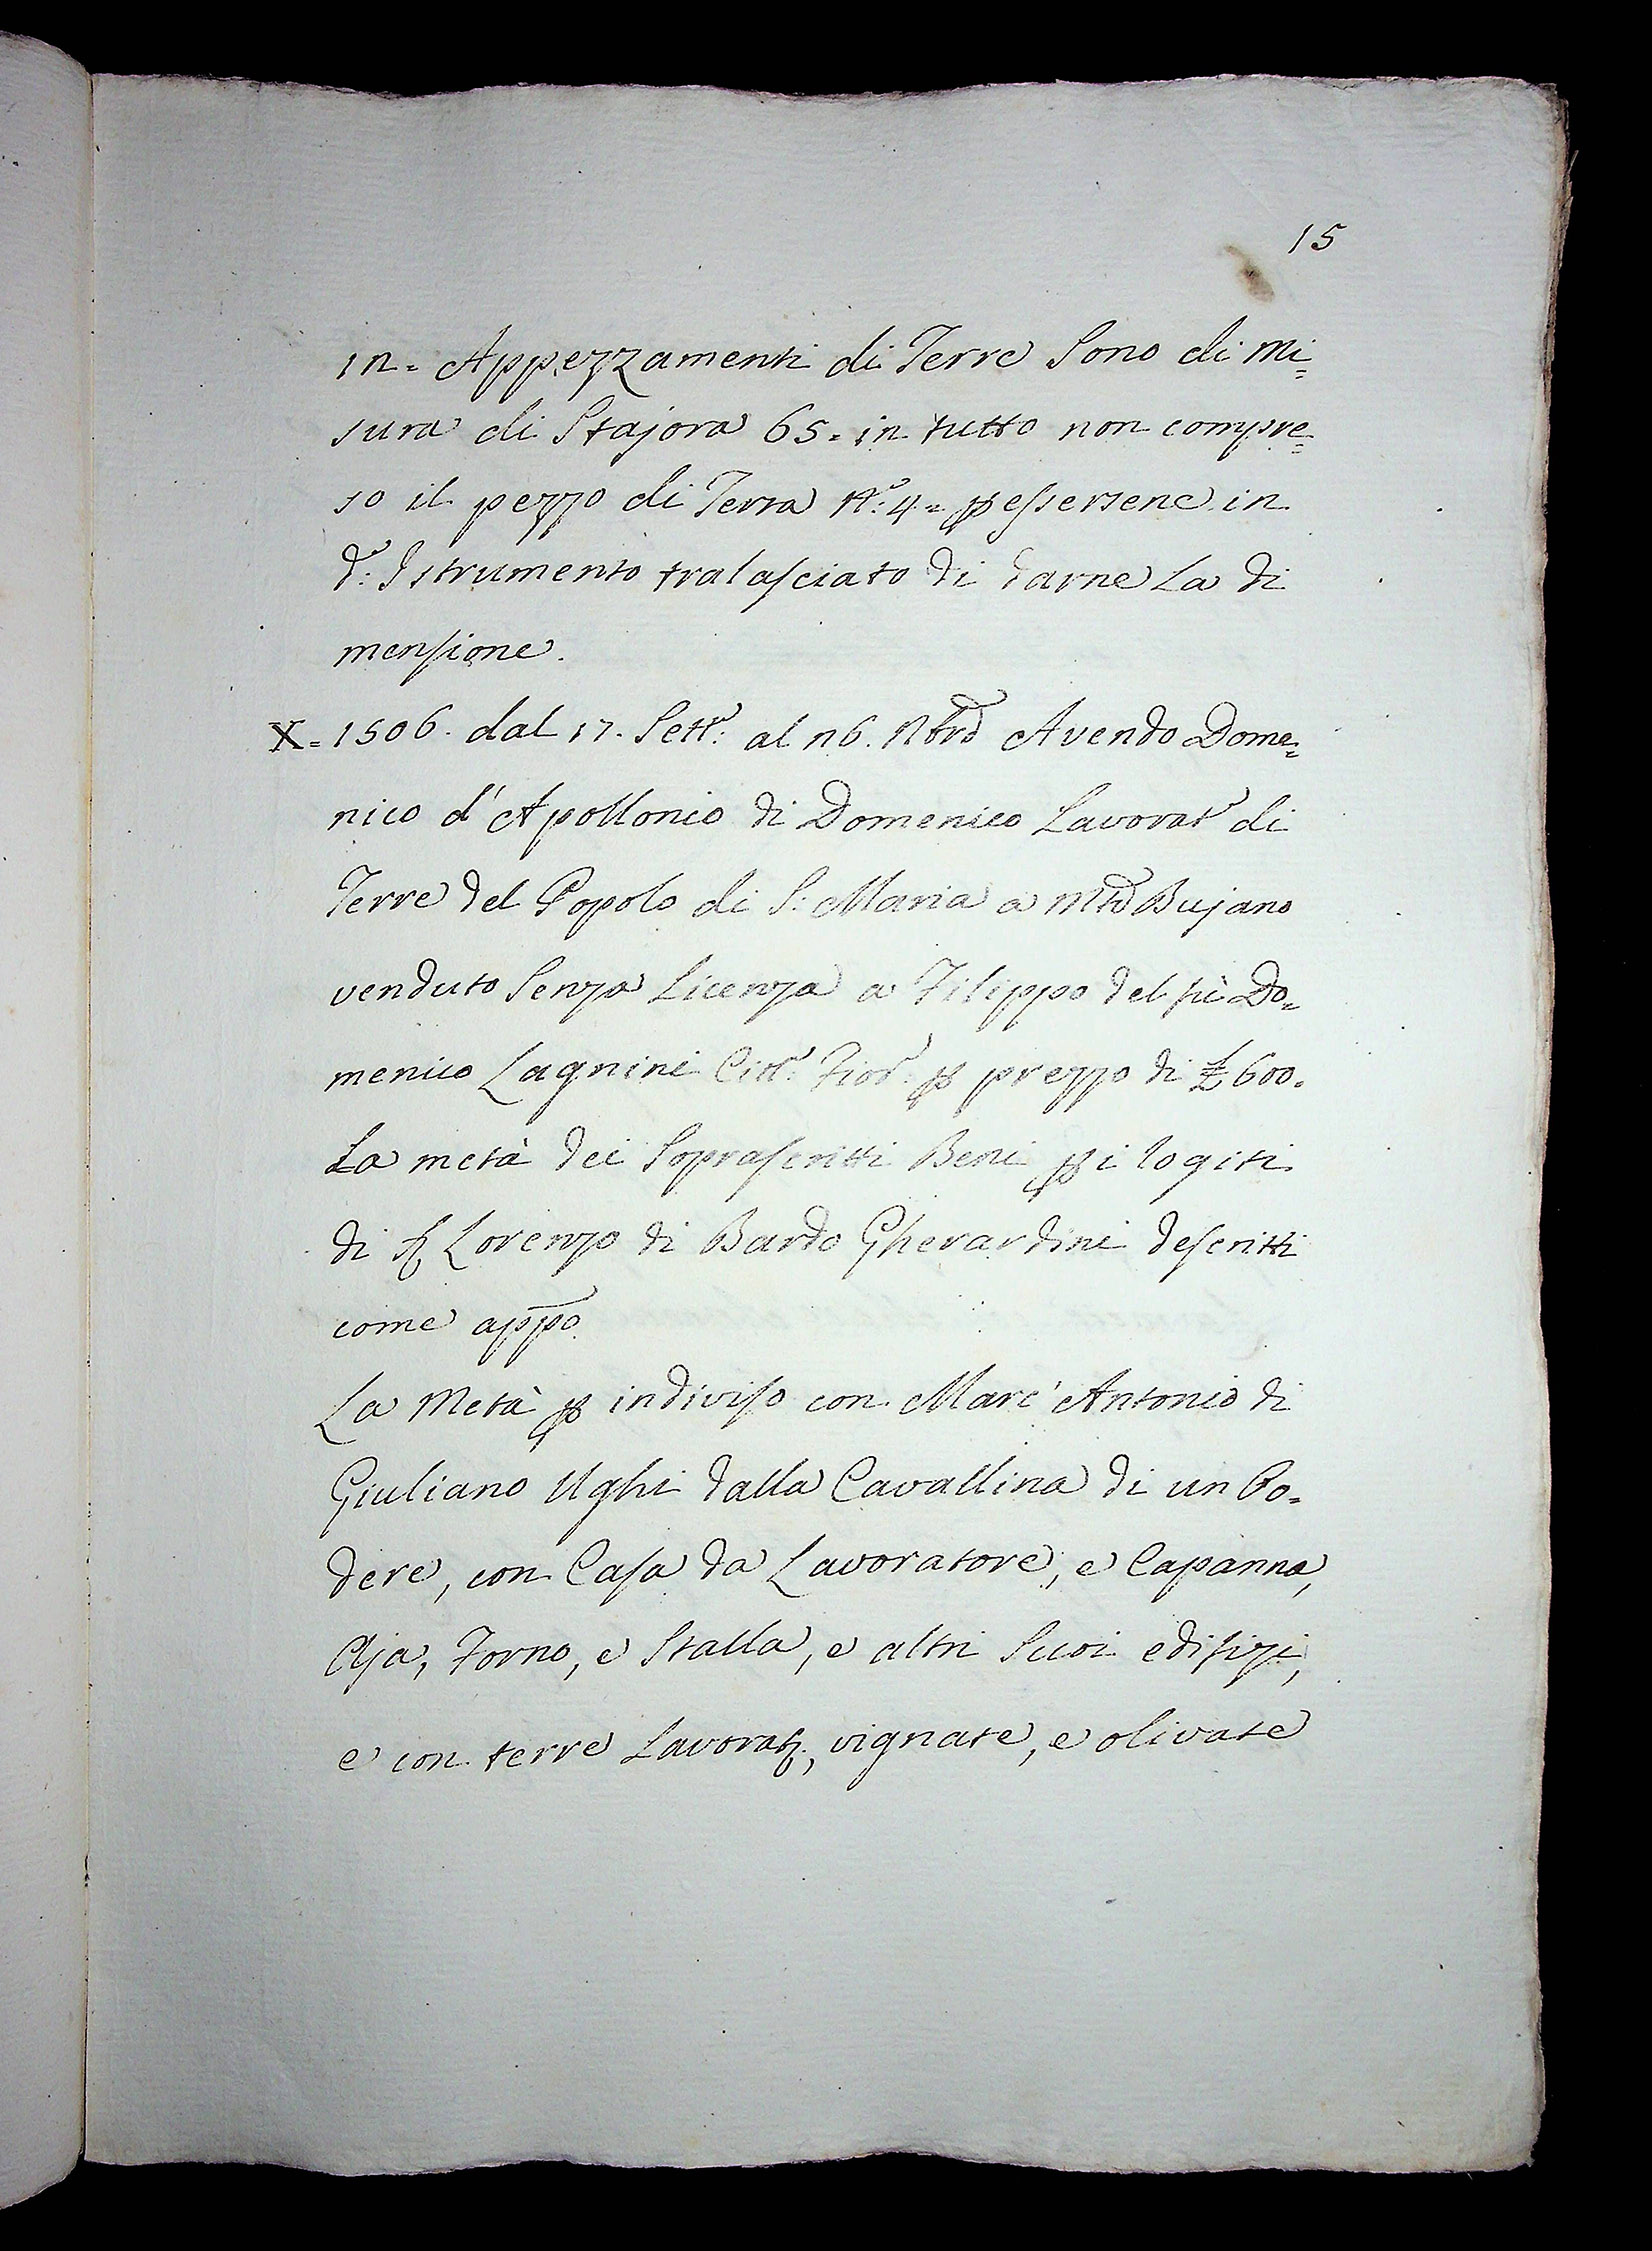 15
12= Appezzamenti di Terre Sono di Mi=
sura di Stajora 65= in tutto non compre=
so il pezzo di Terra N.º 4= p essersene in
d.º Istrumento tralasciato di darne La di
mensione.
X= 1506. dal 17. Sett.e al 26. Nbre Avendo Dome=
nico d'Apollonio di Domenico Lavorat.e di
Terre del Popolo di S. Maria a Mte Bujano
venduto Senza Licenza a Filippo del fù Do=
menico Lagnini Citt.º Fior.º p prezzo di £ 600.
La metà dei Soprascritti Beni p i rogiti
di Sr Lorenzo di Bardo Gherardini descritti
come appo
La Metà p indiviso con Marc'Antonio di
Giuliano Ughi dalla Cavallina di un Po=
dere, con Casa da Lavoratore, e Capanna,
Aja, Forno, e Stalla, e altri Suoi edifizi,
e con terre Lavorat., vignate, e olivate